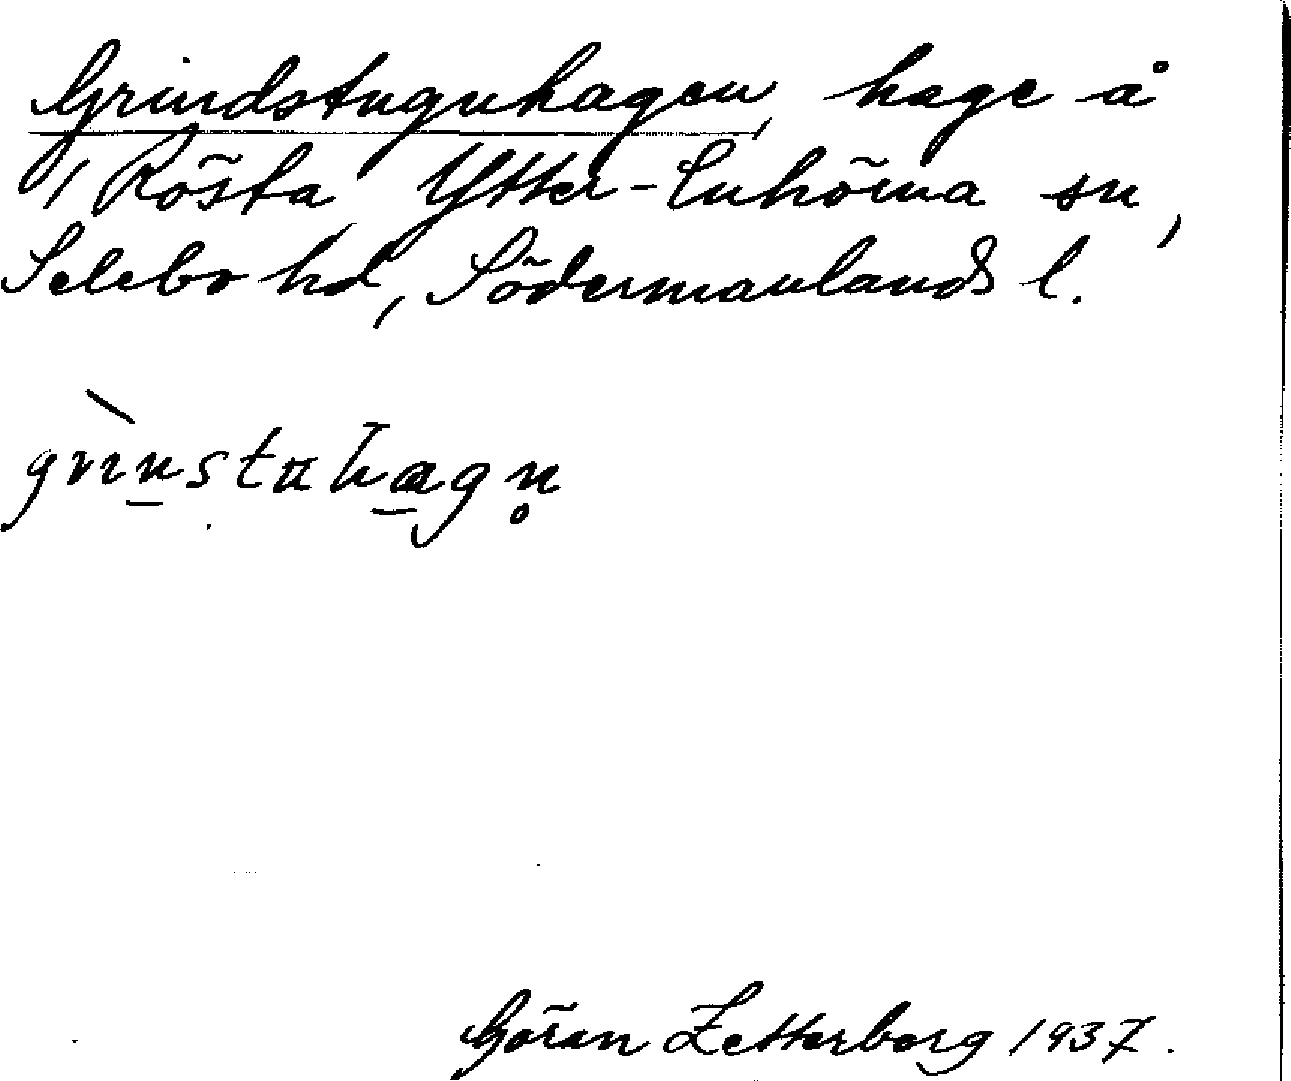 Grindstuguhagen, hage å
1 Rösta Ytter-Enhörna sn,
Selebo hd, Södermanlands l.
grinstuhagn̥
Göran Zetterberg 1937.